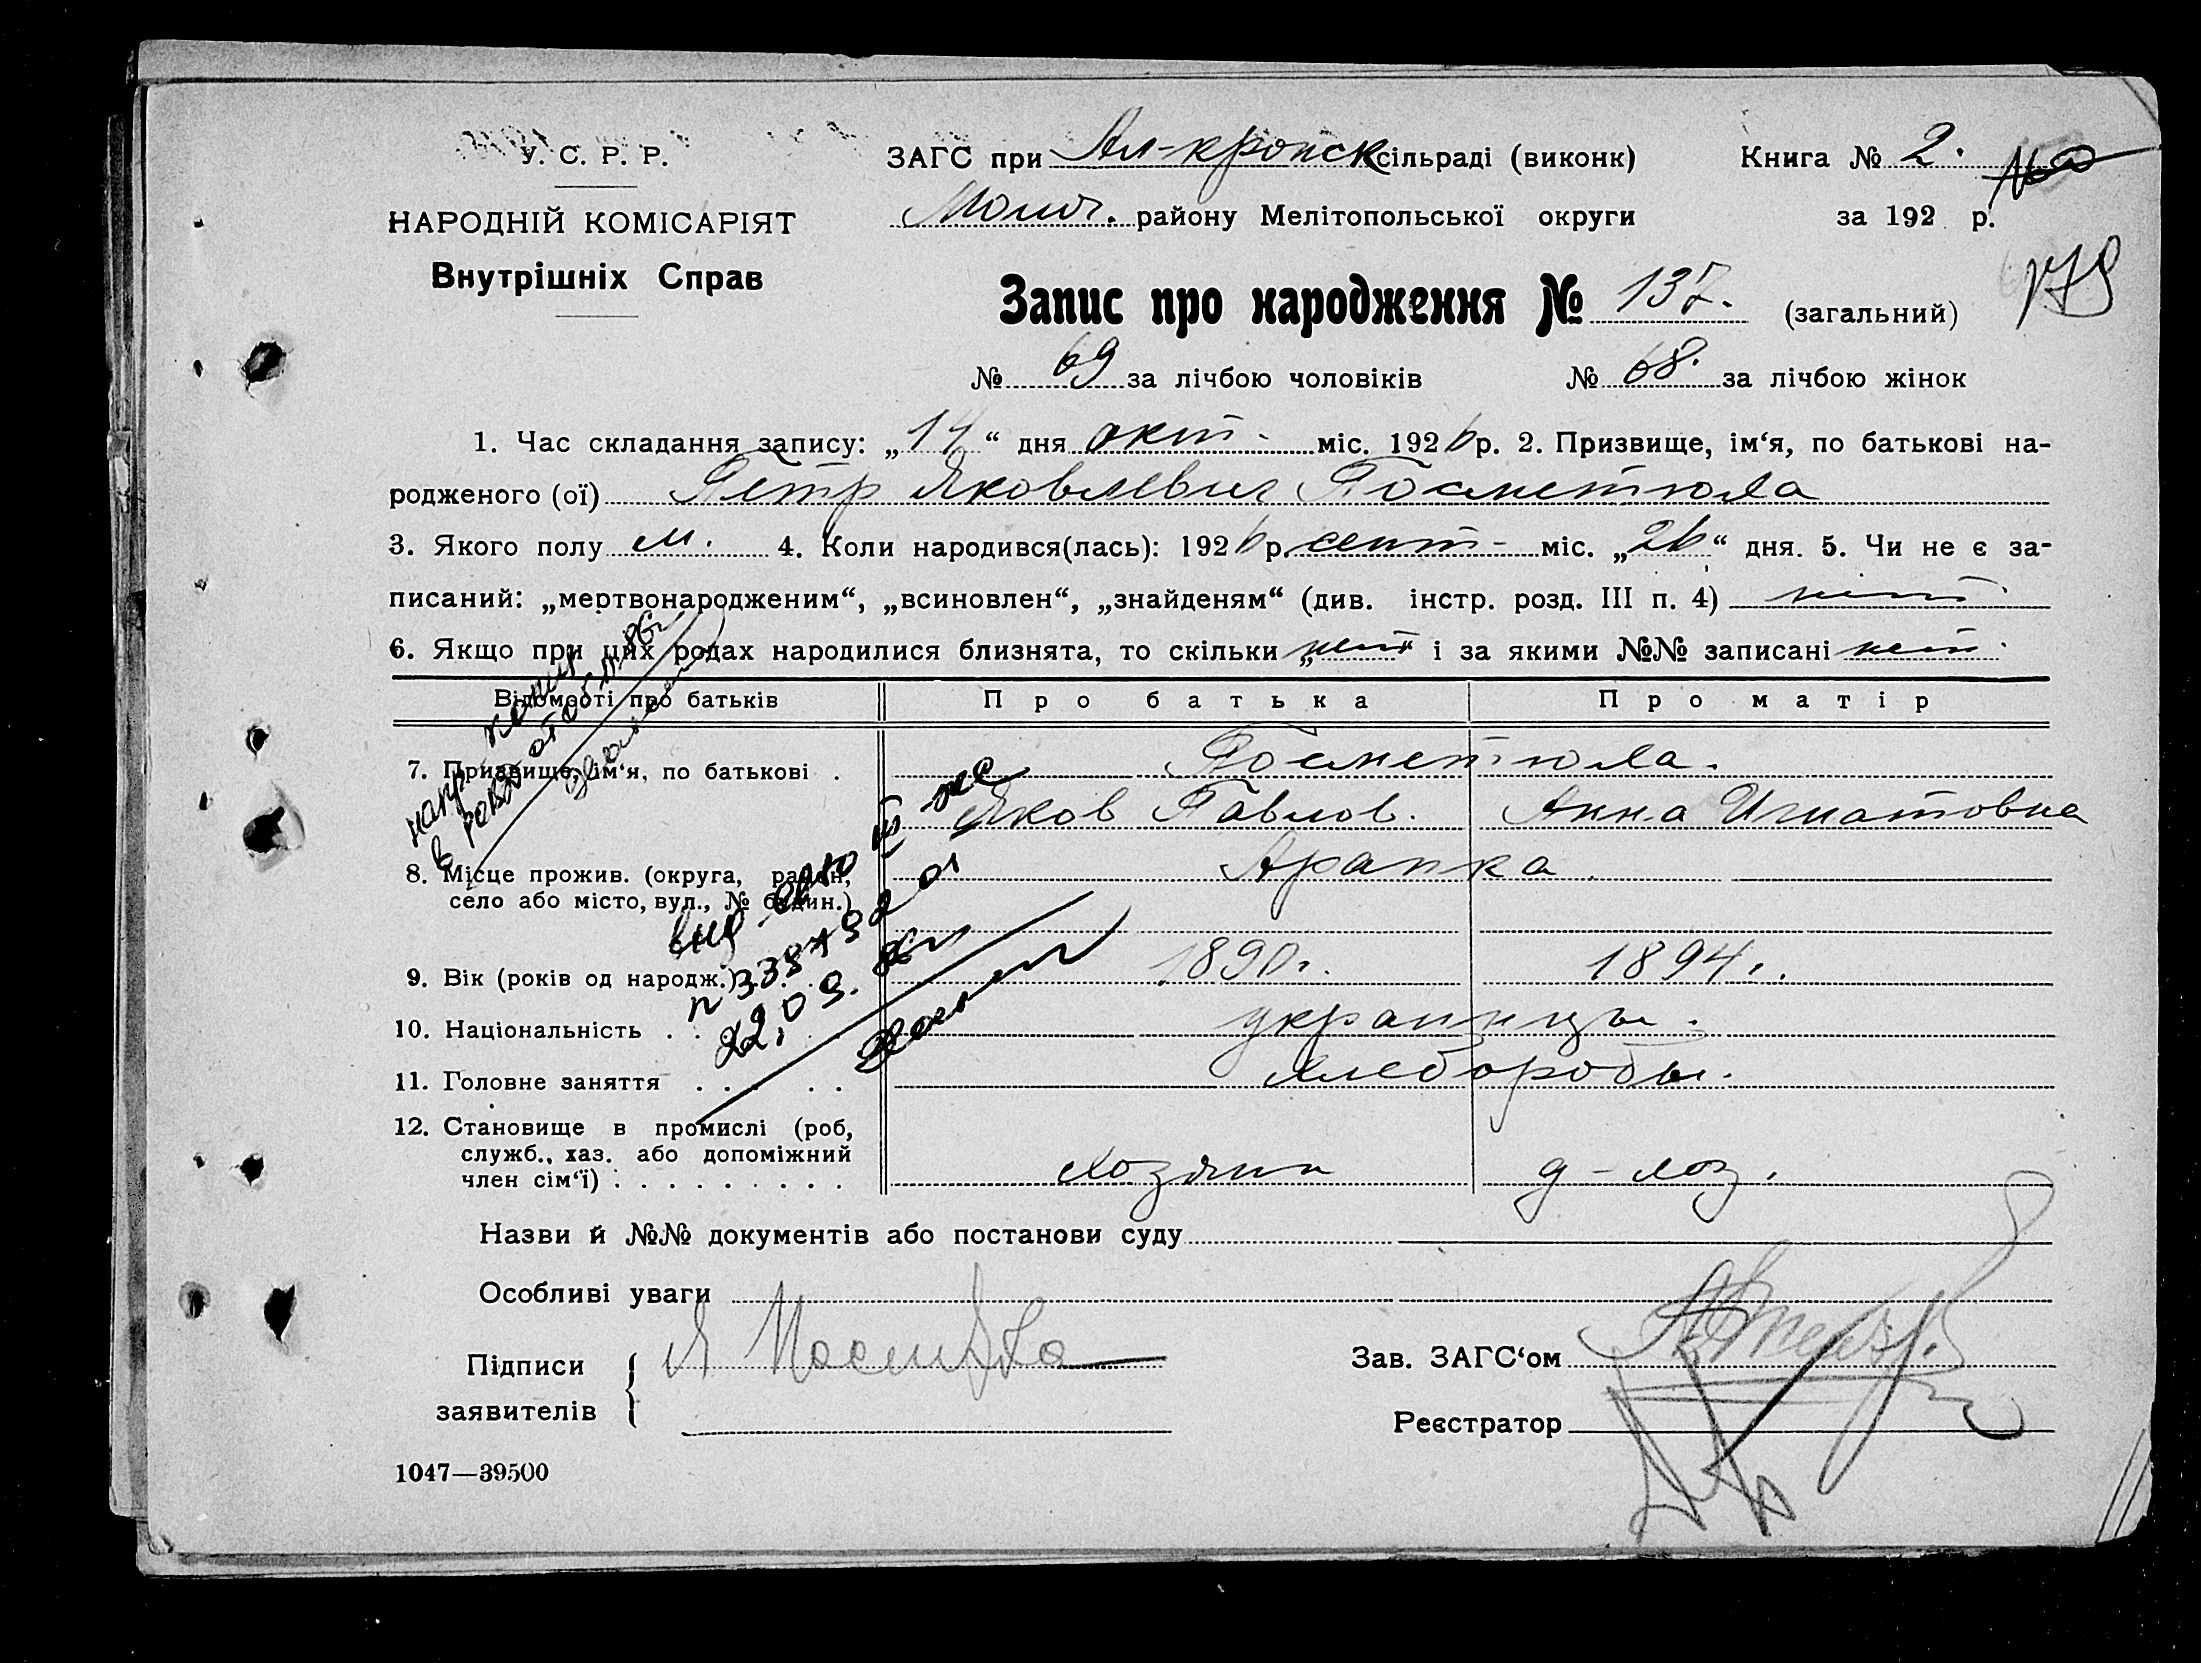 У. С. Р. Р.
НАРОДНІЙ КОМІСАРІЯТ
Внутрішніх Справ
ЗАГС при Ал-кропск сільраді (виконк)
Книга № 2.
Молоч. району Мелітопольської округи
за 192 р.
Запис про народження № 137. (загальний)
№ 69 за лічбою чоловіків № 68. за лічбою жінок
1. Час складання запису: „14“ дня окт. міс. 1926 р. 2. Призвище, ім‘я, по батькові на-
родженого (ої) Петр Яковлевич Посметюха
3. Якого полу м. 4. Коли народився(лась): 1926 р. сент- міс. „26“ дня. 5. Чи не є за-
писаний: „мертвонародженим“, „всиновлен“, „знайденям“ (див. інстр. розд. III п. 4) нет
6. Якщо при цих родах народилися близнята, то скільки „нет“ і за якими №№ записані нет.
Відомості про батьків Про батька Про матір
7. Призвище, ім‘я, по батькові . Посметюха.
Яков Павлов. Анна Игнатовна
8. Місце прожив. (округа, район, Арапка
село або місто, вул., № будин.)
9. Вік (років од народж.) 1890г. 1894г.
10. Національність украинцы.
11. Головне заняття хлеборобы.
12. Становище в промислі (роб,
служб., хаз. або допоміжний
член сім‘ї) хозяин д-хоз.
Назви й №№ документів або постанови суду
Особливі уваги
Підписи
заявителів
Зав. ЗАГС‘ом
Реєстратор
1047—39500